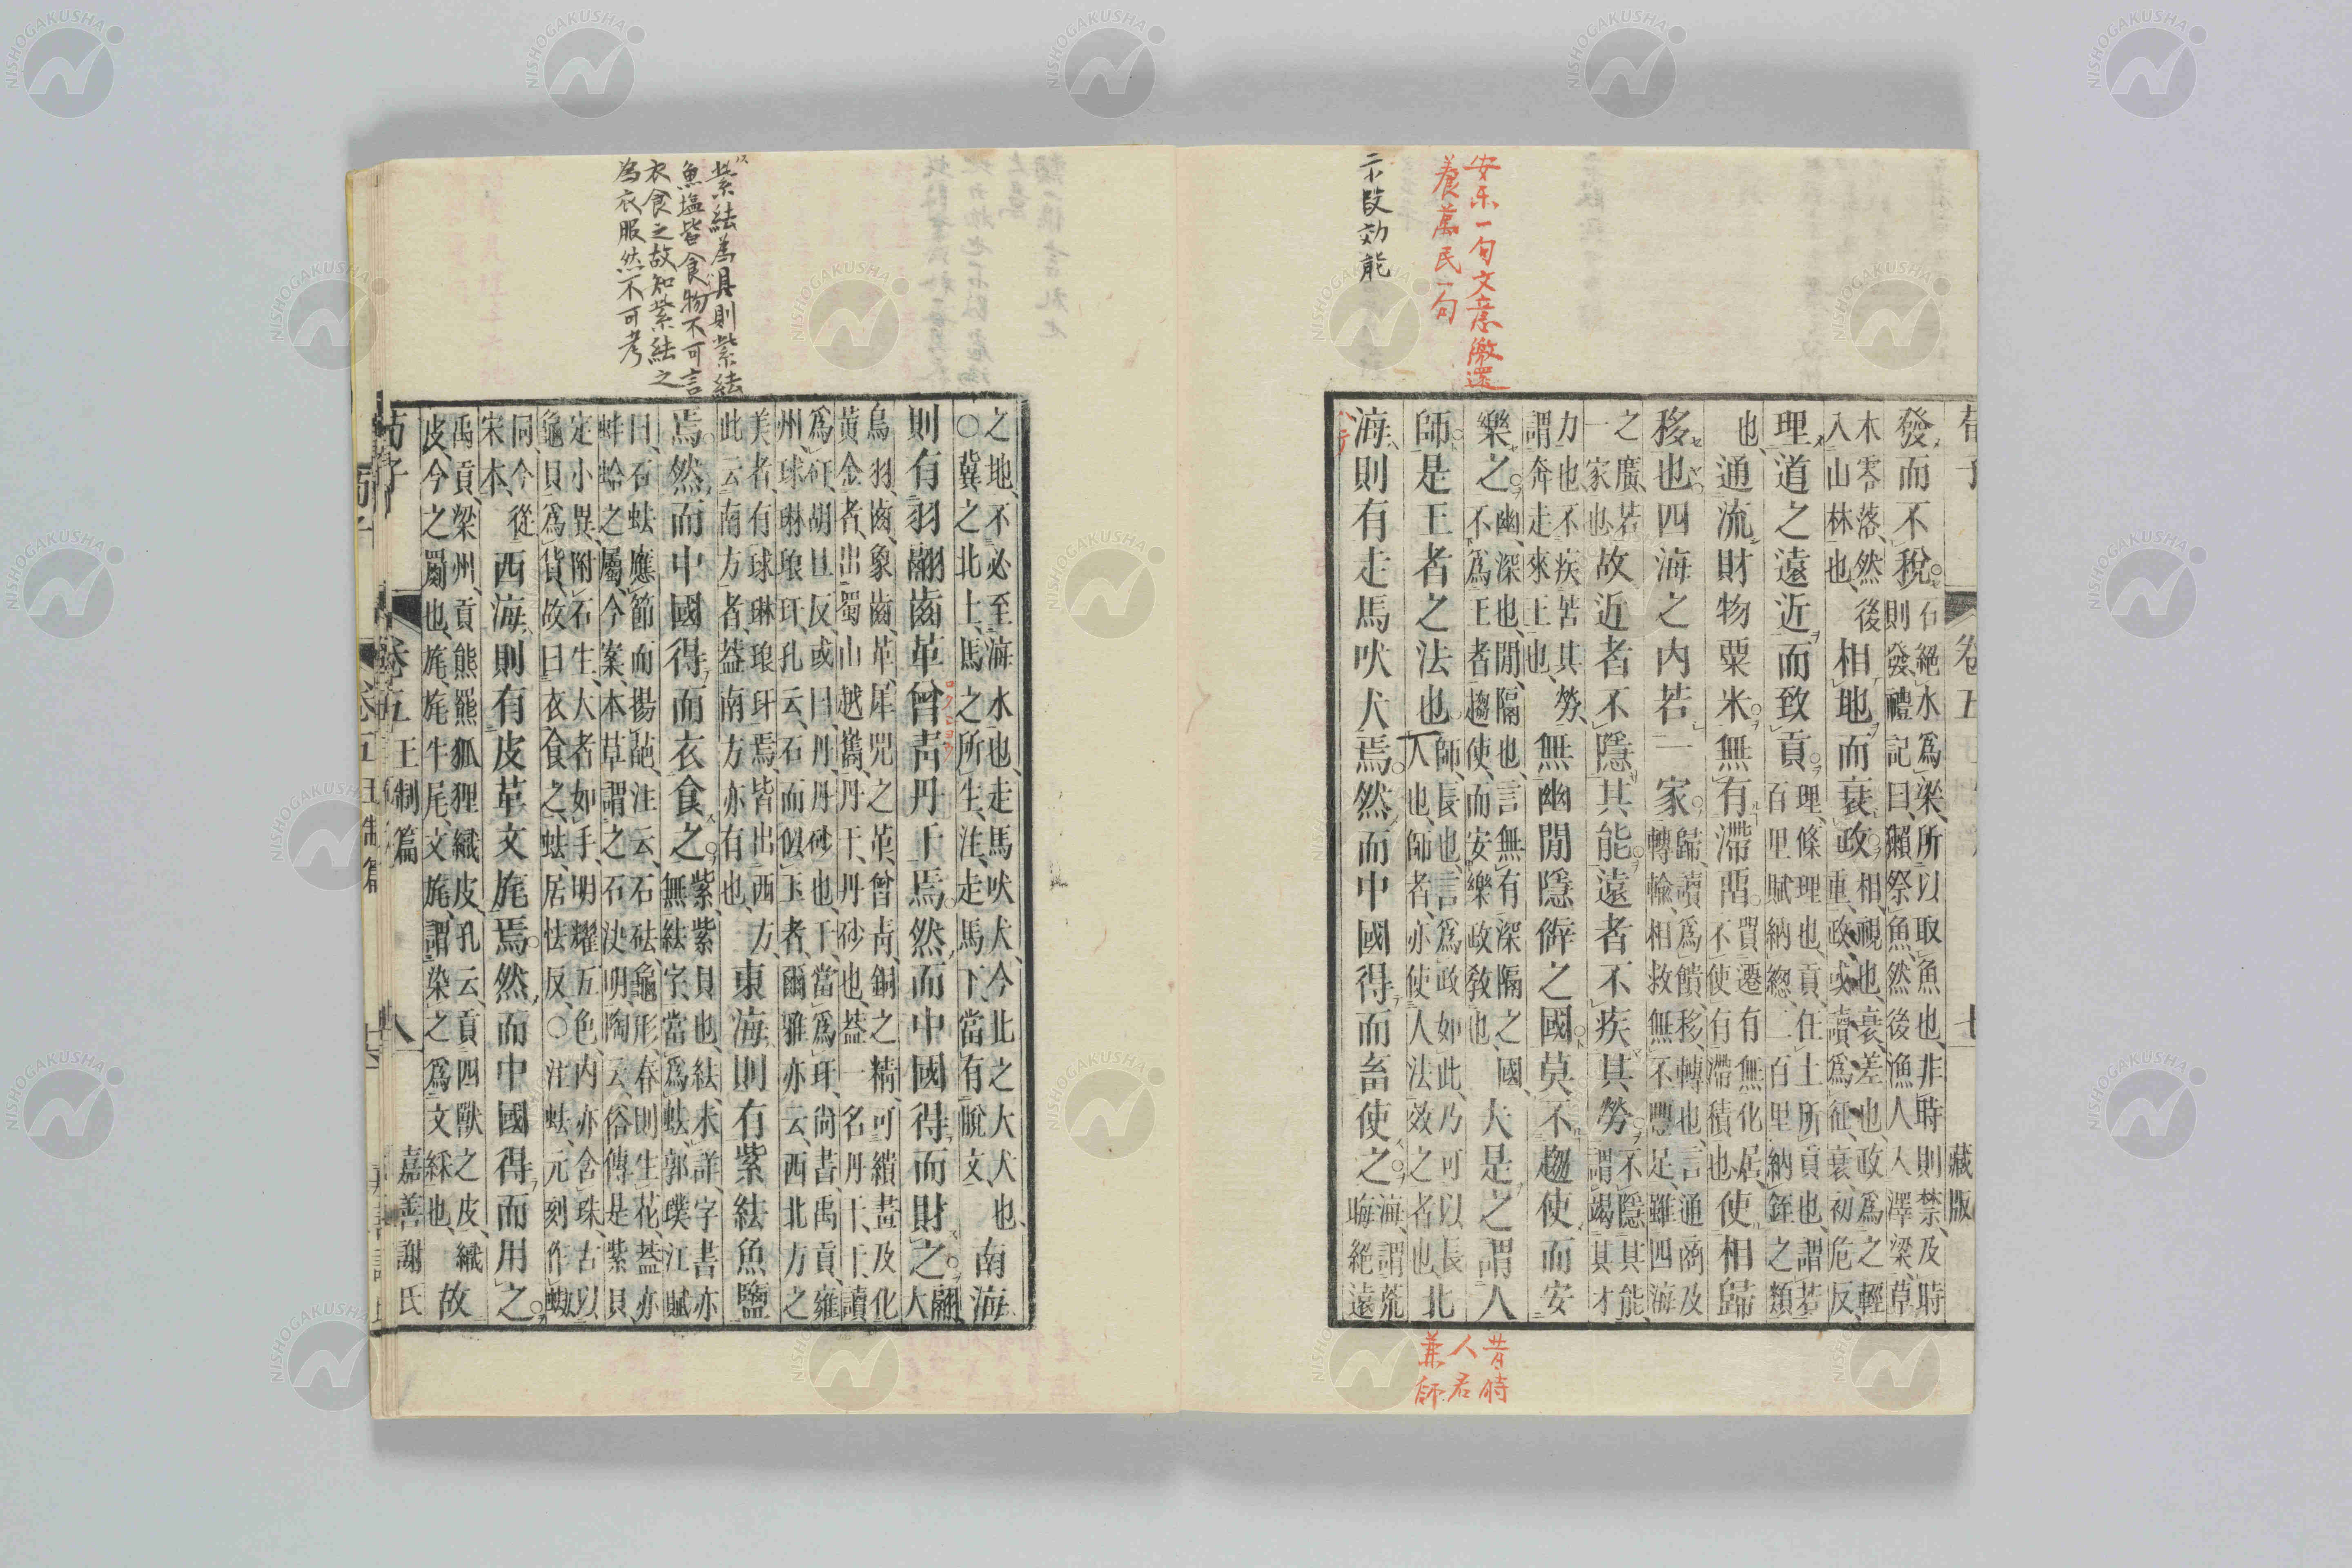 安樂一句文意徼還
養萬民一句
示段効能
荀子 卷五 七 藏版
發而不稅石絕水爲梁所以取魚也非時則禁及時
則發禮記曰獺祭魚然後漁人入澤梁草
木零落然後
入山林也相地而衰政相視也衰差也政爲之輕
重政或讀爲征衰初危反
理道之遠近而致貢理條理也貢任土所貢也謂若
百里賦納緫二百里納銍之類
也通流財物粟米無有滯畱貿遷有無化居
不使有滯積也使相歸
移也四海之内若一家歸讀爲饋移轉也言通商及
轉輸相救無不豐足雖四海
之廣若
一家也故近者不隱其能遠者不疾其勞不隱其能
謂竭其才
力也不疾苦其勞
謂奔走來王也無幽閒隱僻之國莫不趨使而安
樂之幽深也閒隔也言無有深隔之國
不爲王者趨使而安樂政敎也夫是之謂人
師是王者之法也師長也言爲政如此乃可以長
人也師者亦使人法效之者也北
海則有走馬吠犬焉然而中國得而畜使之海謂荒
晦絕遠
昔時
人君
兼師
紫紶爲具則紫紶
魚塩皆食物不可言
衣食之故知紫紶之
為衣服然不可考
之地不必至海水也走馬吠犬今北之大犬也
○冀之北土馬之所生注走馬下當有脫文南海
則有羽翮齒革曾靑丹干焉然而中國得而財之翮
大
鳥羽齒象齒革犀兕之革曾靑銅之精可繢畫及化
黃金者出蜀山越巂丹干丹砂也蓋一名丹干干讀
爲矸胡旦反或曰丹丹砂也干當爲玕尙書禹貢雍
州球琳琅玕孔云石而似玉者爾雅亦云西北方之
美者有球琳琅玕焉皆出西方
此云南方者蓋南方亦有也東海則有紫紶魚鹽
焉然而中國得而衣食之紫紫貝也紶未詳字書亦
無紶字當爲𧉧郭璞江賦
曰石𧉧應節而揚葩注云石砝龜形春則生花蓋亦
蚌蛤之屬今案本草謂之石决明陶云俗傳是紫貝
定小異附石生大者如手明耀五色内亦含珠古以
龜貝爲貨故曰衣食之𧉧居怯反○注𧉧元刻作蜐
同今從
宋本西海則有皮革文旄焉然而中國得而用之
禹貢梁州貢熊羆狐狸織皮孔云貢四獸之皮織
皮今之罽也旄旄牛尾文旄謂染之爲文綵也故
荀子 卷五 王制篇 八 嘉善謝氏